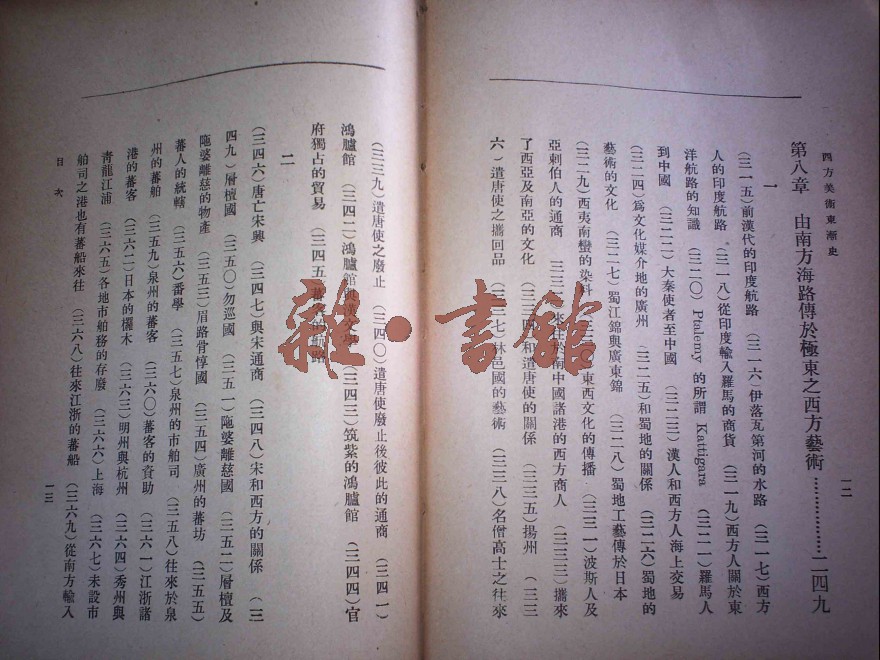 西方美術東漸史
一二
第八章　由南方海路傳於極東之西方藝術……………二四九
一
（三一五）前漢代的印度航路　（三一六）伊落瓦第河的水路　（三一七）西方
人的印度航路　（三一八）從印度輸入羅馬的商貨　（三一九）西方人關於東
洋航路的知識　（三二〇）Ptalemy 的所謂 Kattigara　（三二一）羅馬人
到中國　（三二二）大秦使者至中國　（三二三）漢人和西方人海上交易
（三二四）爲文化媒介地的廣州　（三二五）和蜀地的關係　（三二六）蜀地的
藝術的文化　（三二七）蜀江錦與廣東錦　（三二八）蜀地工藝傳於日本
（三二九）西夷南蠻的染料　（三三〇）東西文化的傳播　（三三一）波斯人及
亞剌伯人的通商　（三三二）來　南中國諸港的西方商人　（三三三）攜來
了西亞及南亞的文化　（三三四）和遣唐使的關係　（三三五）揚州　（三三
六）遣唐使之攜回品　（三三七）林邑國的藝術　（三三八）名僧高士之往來
（三三九）遣唐使之廢止　（三四〇）遣唐使廢止後彼此的通商　（三四一）
鴻臚館　（三四二）鴻臚館與　文學　（三四三）筑紫的鴻臚館　（三四四）官
府獨占的貿易　（三四五）蕃　的航路
二
（三四六）唐亡宋興　（三四七）與宋通商　（三四八）宋和西方的關係　（三
四九）層檀國　（三五〇）勿巡國　（三五一）陁婆離慈國　（三五二）層檀及
陁婆離慈的物產　（三五三）眉路骨惇國　（三五四）廣州的蕃坊　（三五五）
蕃人的統轄　（三五六）番學　（三五七）泉州的市舶司　（三五八）往來於泉
州的蕃舶　（三五九）泉州的蕃客　（三六〇）蕃客的資助　（三六一）江浙諸
港的蕃客　（三六二）日本的欏木　（三六三）明州與杭州　（三六四）秀州與
青龍江浦　（三六五）各地市舶務的存廢　（三六六）上海　（三六七）未設市
舶司之港也有蕃船來往　（三六八）往來江浙的蕃船　（三六九）從南方輸入
目次
一三
雜·書館